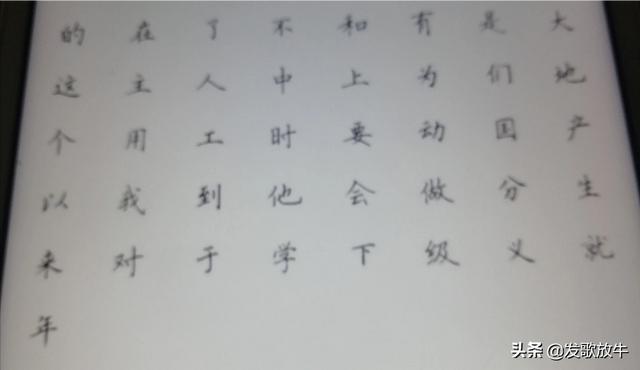 的在了不和有是大
这主人中上为们地
个用工时要动国产
以我到他会做分生
来对于学下级义就
年
头条 @发歌放牛